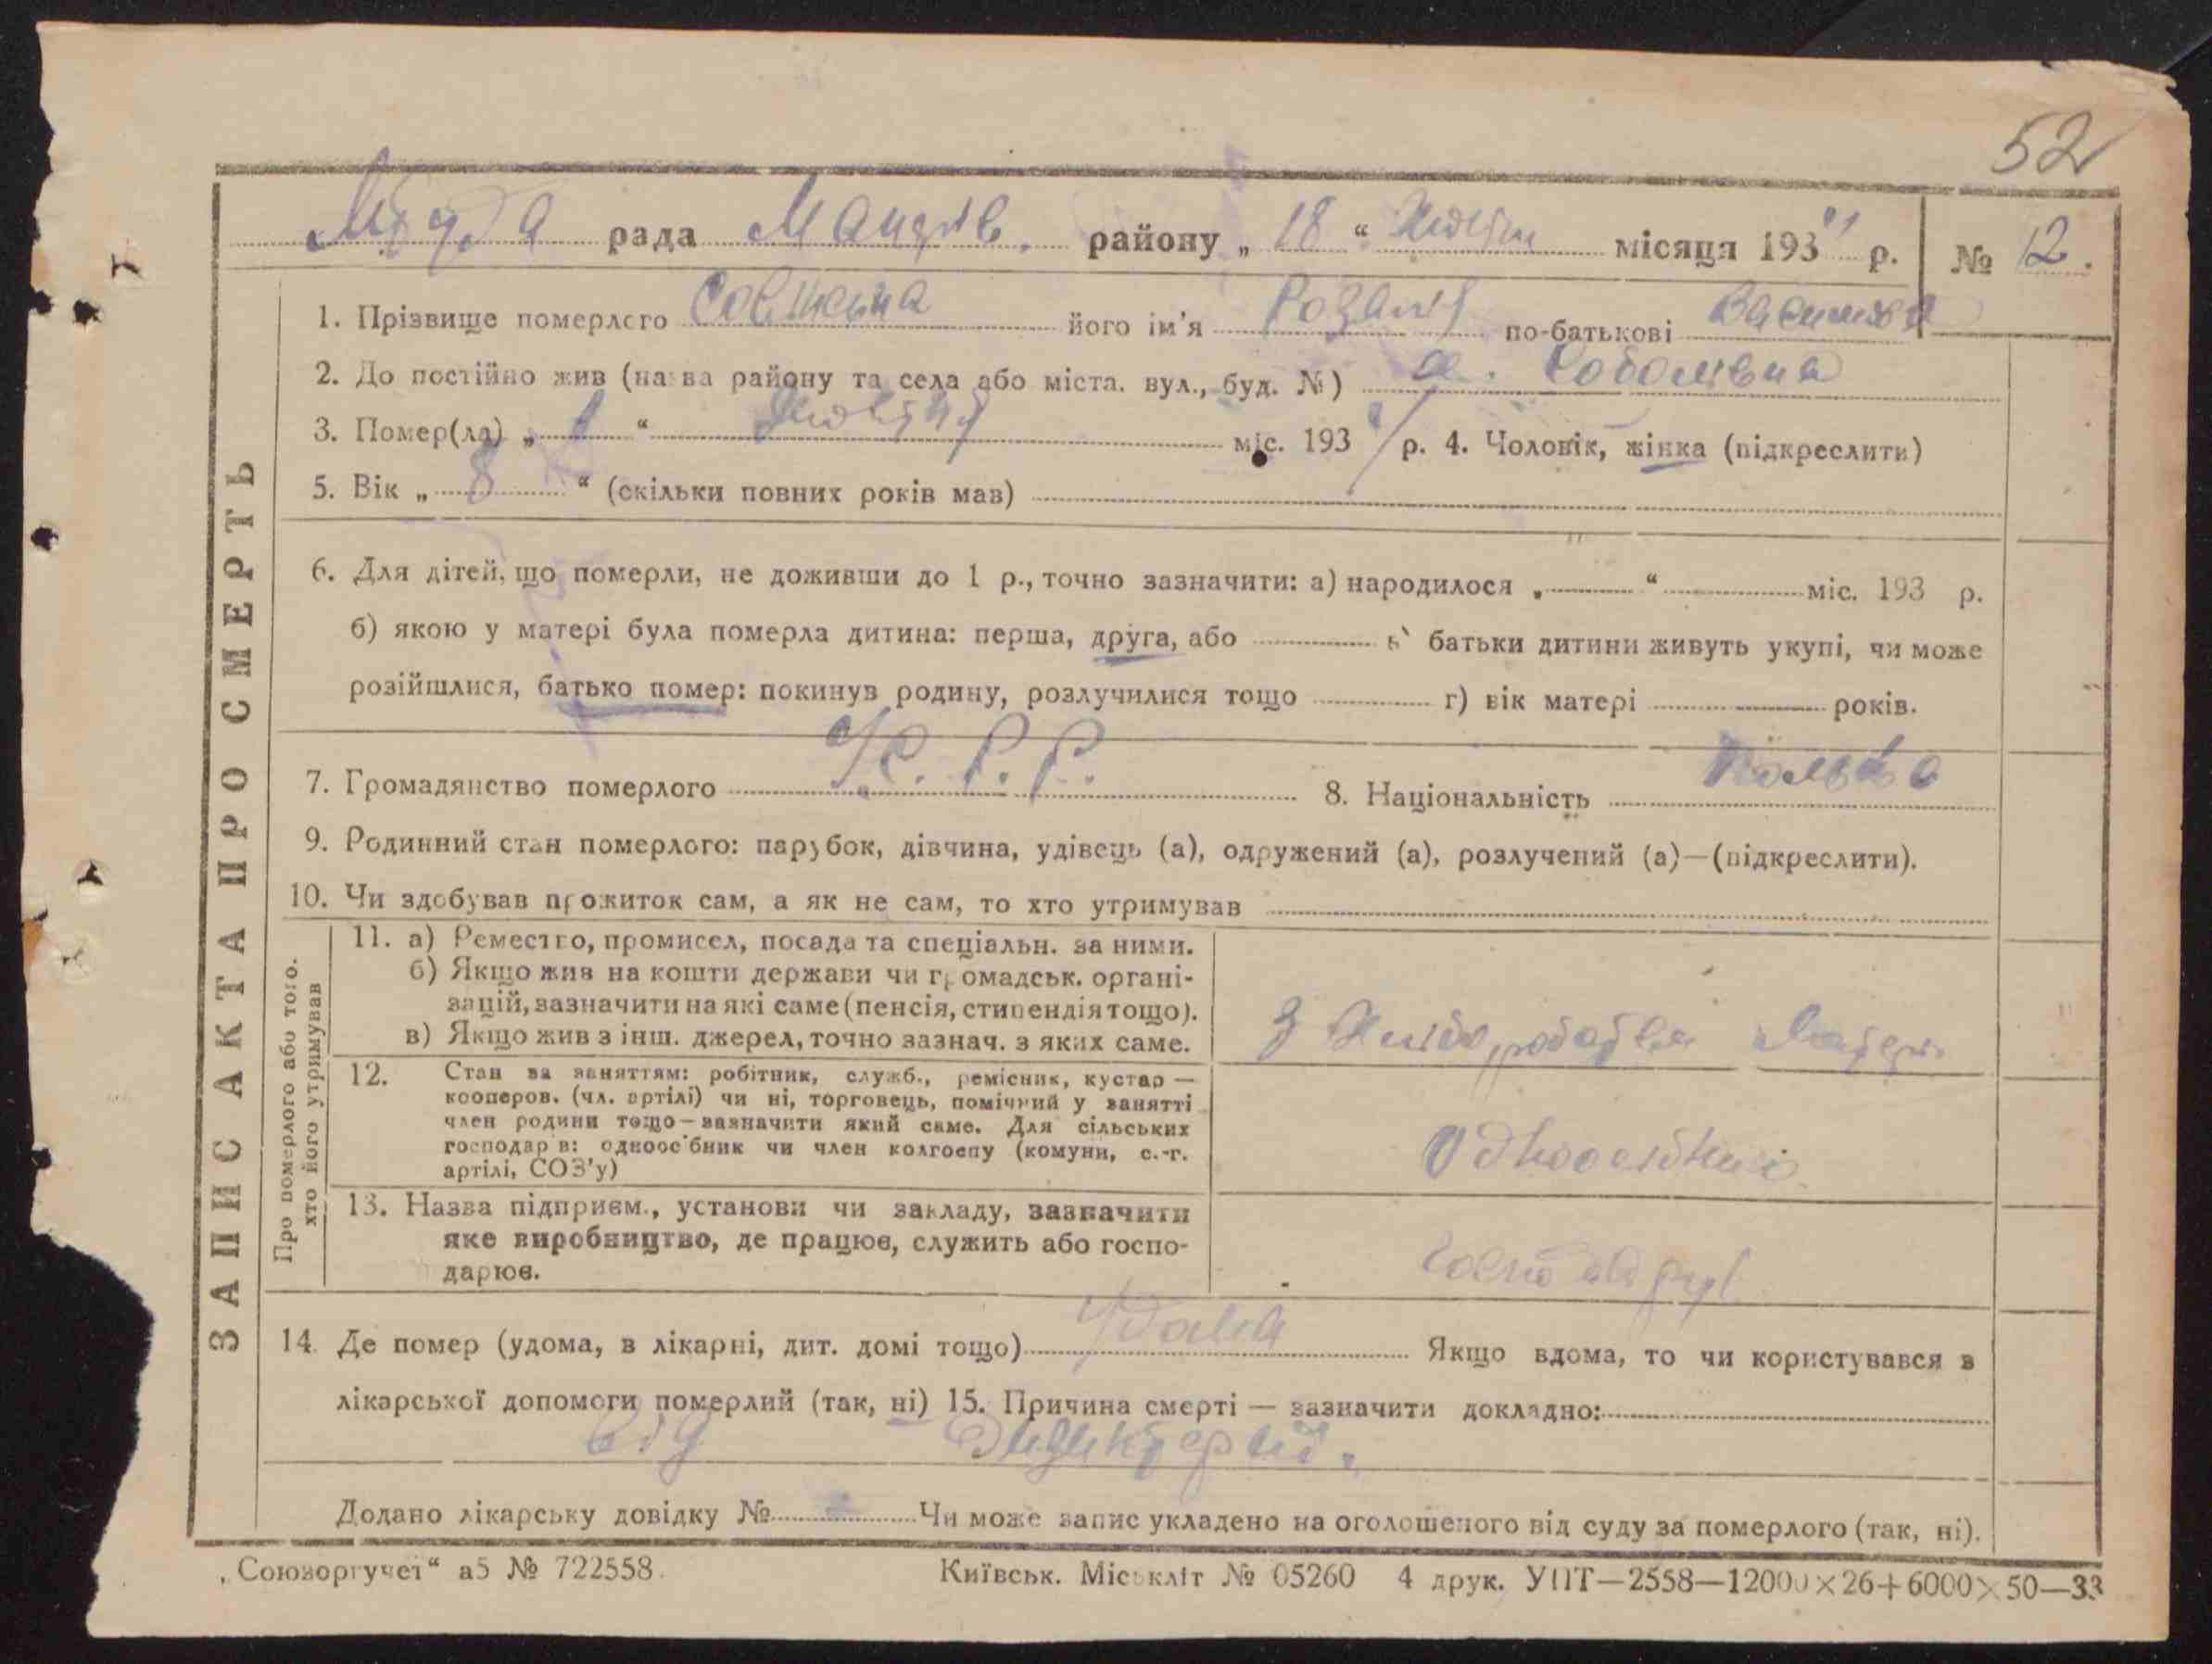 52
рада района „ 18 “ місяця 193 р. № 12.
ЗАПИС АКТА ПРО СМЕРТЬ
1. Прізвище померлого його ім'я Розалія по-батькові
2. Де постійно жив (назва району та села або міста, вул., буд. №) с.
3. Помер(ла) „ “ міс. 193 р. 4. Чоловік, жінка (підкреслити)
5. Вік „ 8 “ (скільки повних років мав)
6. Для дітей, що померли, не доживши до 1 р., точно зазначити: а) народилося „ “ міс. 193 р.
б) якою у матері була померла дитина: перша, друга, або в` батьки дитини живуть укупі, чи може
розійшлися, батько помер: покинув родину, розлучилися тощо г) вік матері років.
7. Громадянство померлого У.С.Р.Р. 8. Національність
9. Родинний стан померлого: парубок, дівчина, удівець (а), одружений (а), розлучений (а)—(підкреслити).
10. Чи здобував прожиток сам, а як не сам, то хто утримував
Про померлого або того,
хто його утримував
11. а) Ремество, промисел, посада та спеціальн. за ними.
б) Якщо жив на кошти держави чи громадськ. органі-
зацій, зазначити на які саме (пенсія, стипендія тощо).
в) Якщо жив з інш. джерел, точно зазнач. з яких саме.
З Хліборобства
12. Стан за заняттям: робітник, служб., ремісник, кустар —
кооперов. (чл. артілі) чи ні, торговець, помічний у занятті
член родини тощо—зазначити який саме. Для сільських
господарів: одноосібник чи член колгоспу (комуни, с.-г.
артілі, СОЗ'у)
13. Назва підприєм., установи чи закладу, зазначити
яке виробництво, де працює, служить або госпо-
дарює.
14. Де помер (удома, в лікарні, дит. домі тощо) Удома Якщо вдома, то чи користувався в
лікарської допомоги померлий (так, ні) 15. Причина смерті — зазначити докладно:
від
Додано лікарську довідку № Чи може запис укладено на оголошеного від суду за померлого (так, ні).
„Союзоргучет“ а5 № 722558. Київськ. Міськліт № 05260 4 друк. УПТ—2558—12000×26+6000×50—33